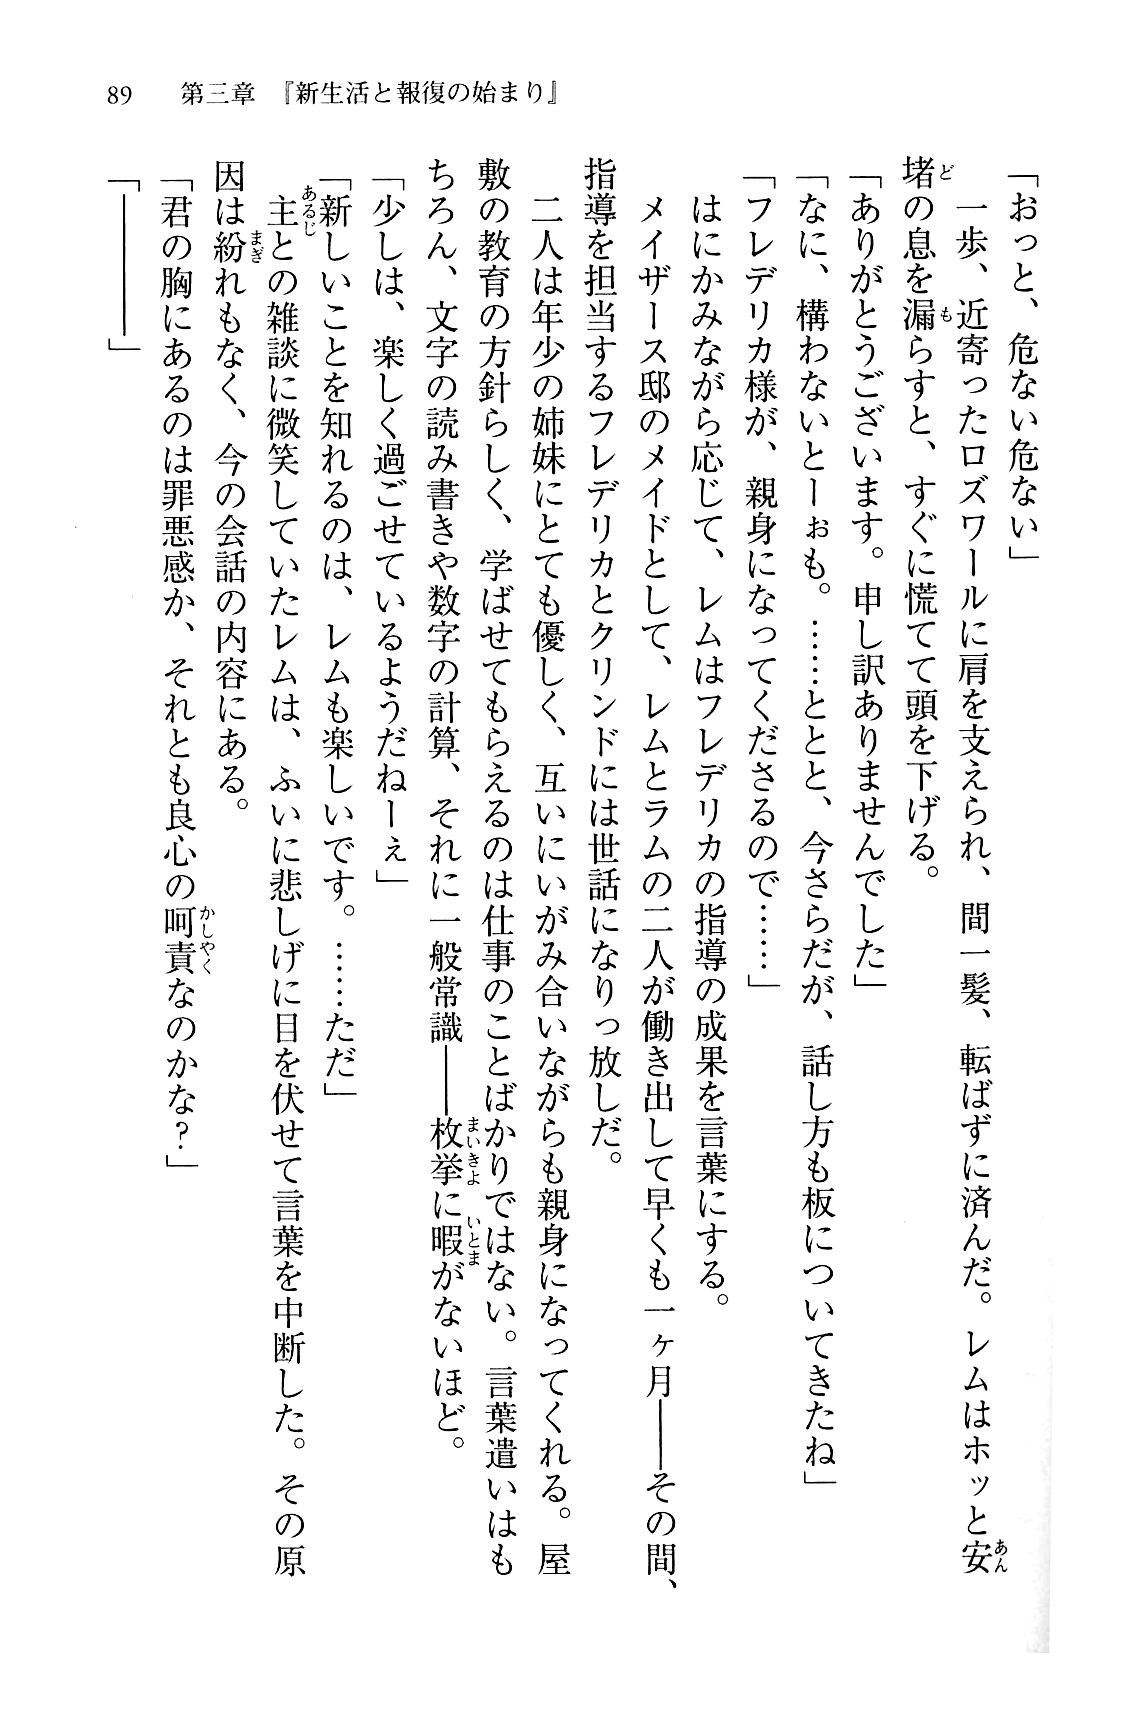 89　第三章　『新生活と報復の始まり』
「おっと、危ない危ない」
　一歩、近寄ったロズワールに肩を支えられ、間一髪、転ばずに済んだ。レムはホッと安
堵の息を漏らすと、すぐに慌てて頭を下げる。
「ありがとうございます。申し訳ありませんでした」
「なに、構わないとーぉも。……ととと、今さらだが、話し方も板についてきたね」
「フレデリカ様が、親身になってくださるので……」
　はにかみながら応じて、レムはフレデリカの指導の成果を言葉にする。
　メイザース邸のメイドとして、レムとラムの二人が働き出して早くも一ヶ月――その間、
指導を担当するフレデリカとクリンドには世話になりっ放しだ。
　二人は年少の姉妹にとても優しく、互いにいがみ合いながらも親身になってくれる。屋
敷の教育の方針らしく、学ばせてもらえるのは仕事のことばかりではない。言葉遣いはも
ちろん、文字の読み書きや数字の計算、それに一般常識――枚挙に暇がないほど。
「少しは、楽しく過ごせているようだねーぇ」
「新しいことを知れるのは、レムも楽しいです。……ただ」
　主との雑談に微笑していたレムは、ふいに悲しげに目を伏せて言葉を中断した。その原
因は紛れもなく、今の会話の内容にある。
「君の胸にあるのは罪悪感か、それとも良心の呵責なのかな？」
「――――」